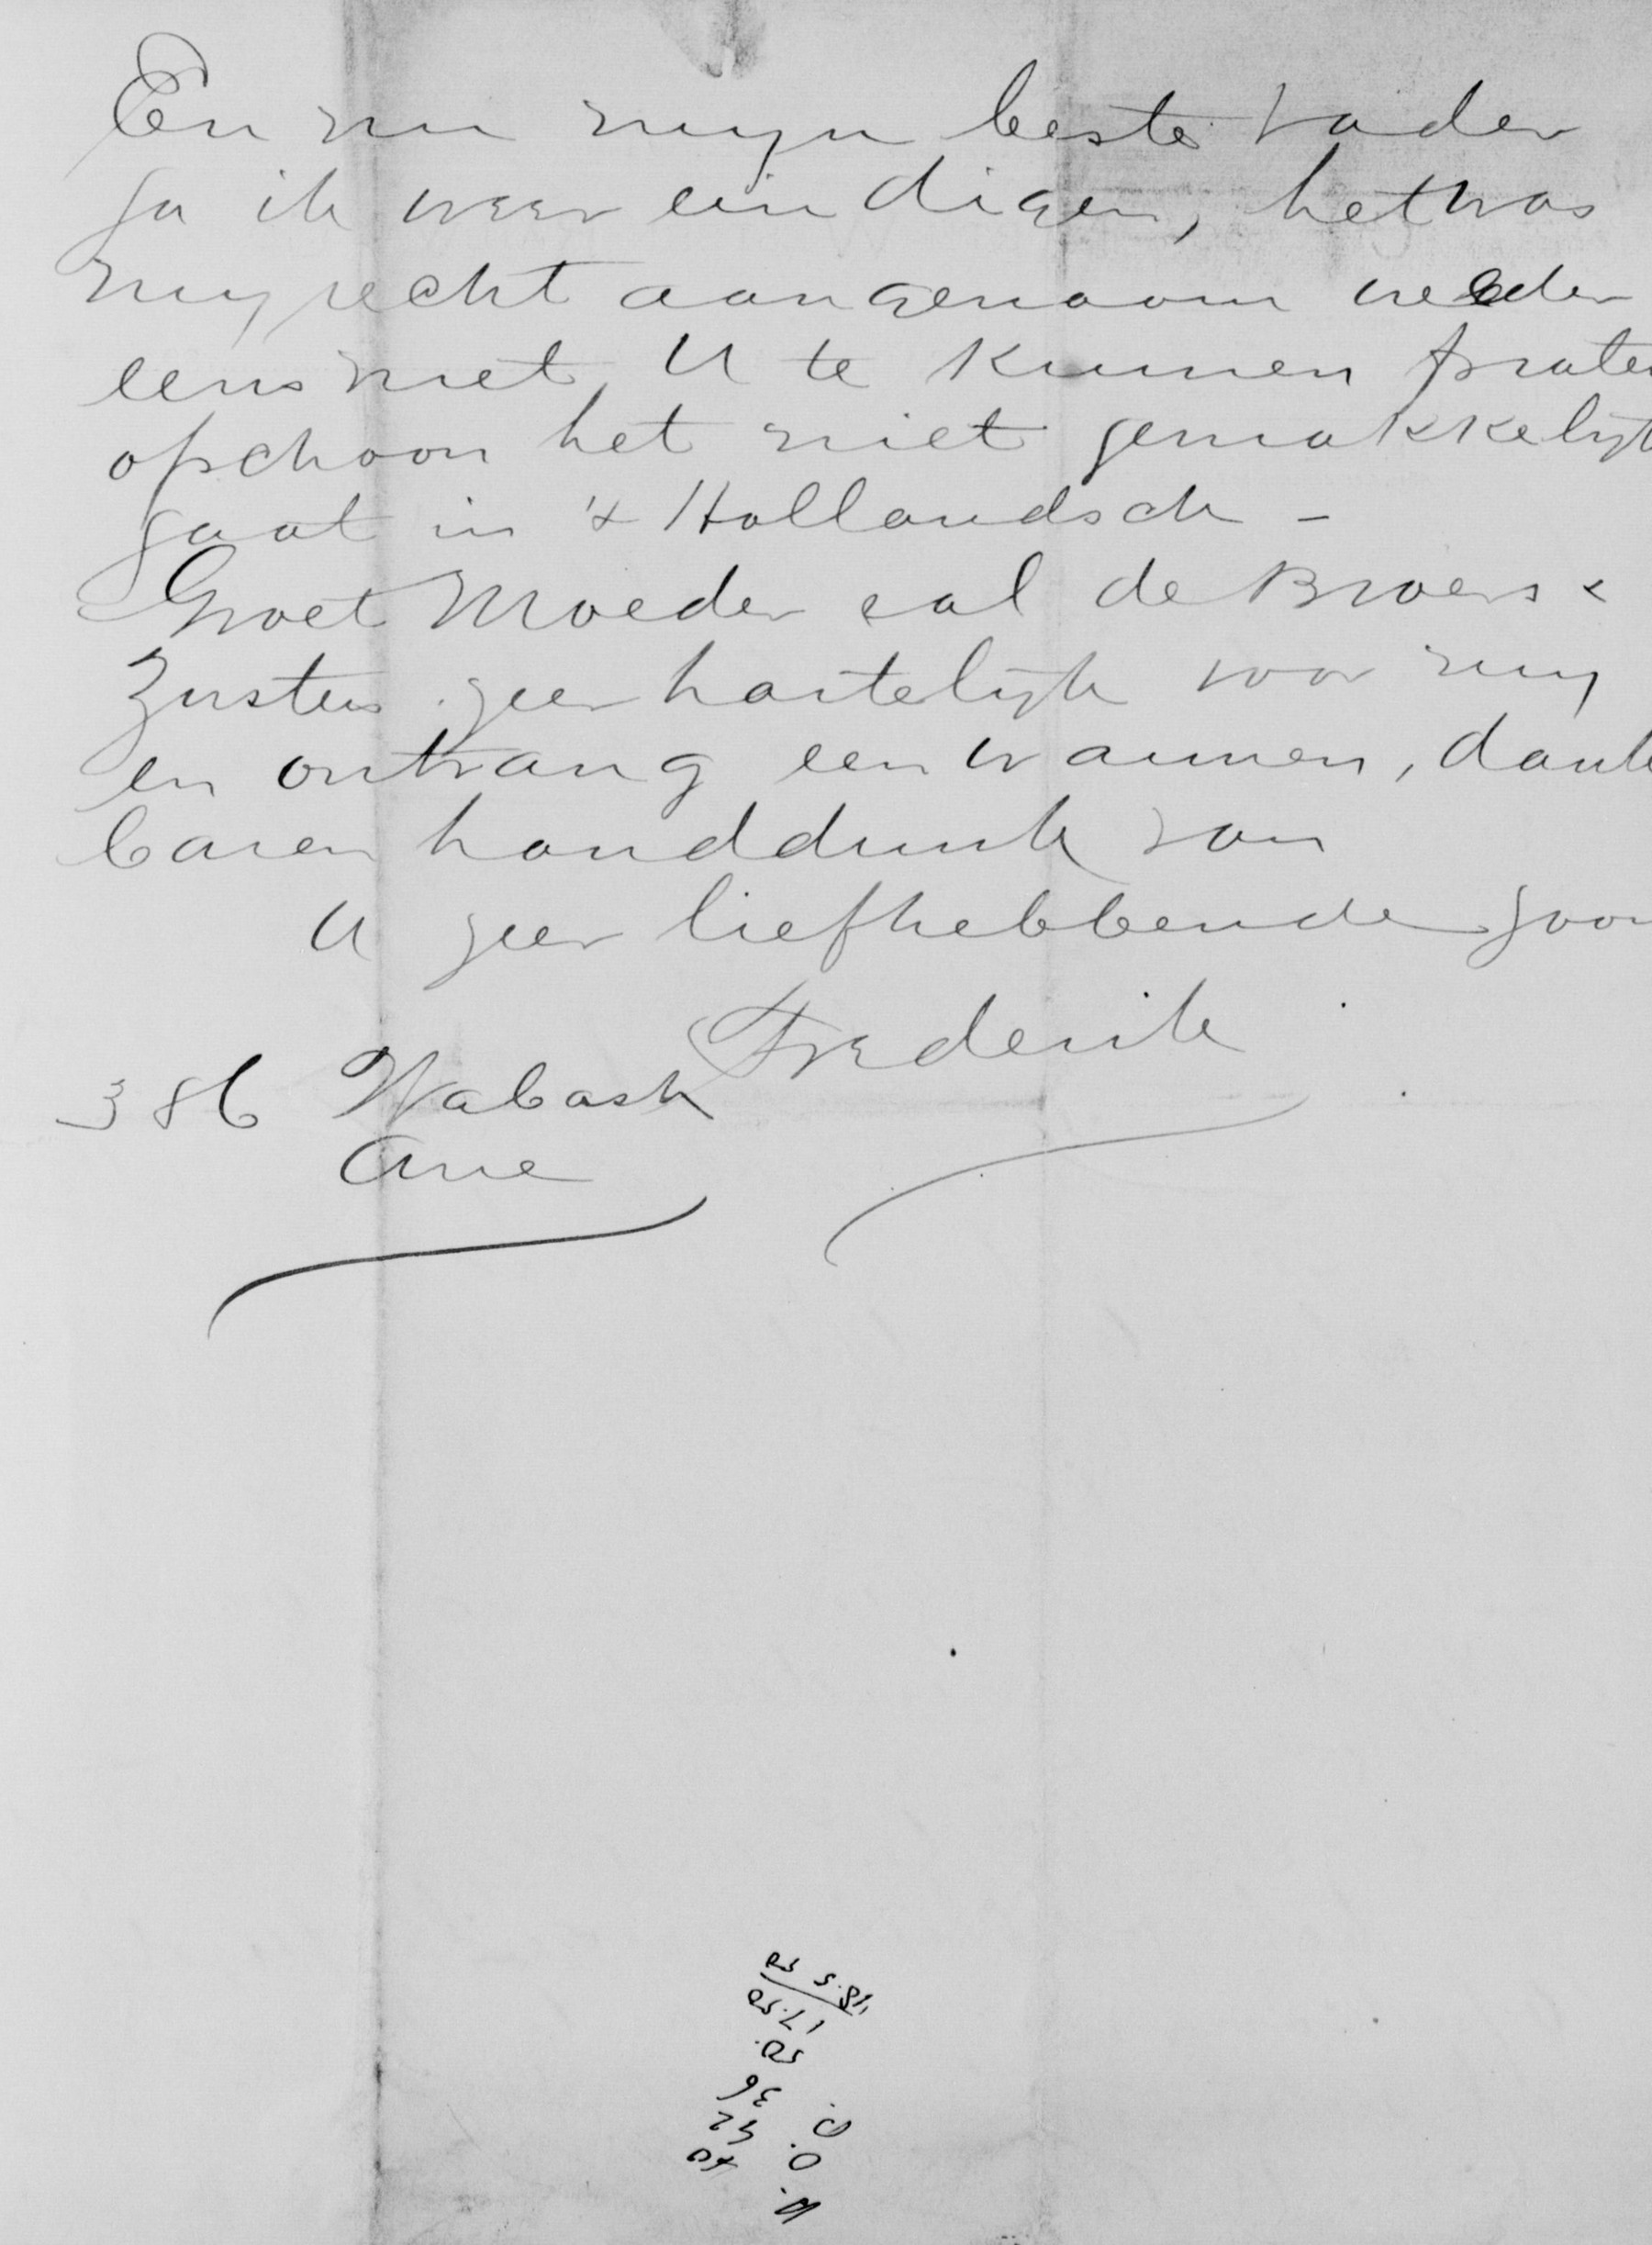 En nu mijn beste Vader
ga ik weer eindigen, het was
mij recht aangenaam weder
eens met U te kunnen praten
opschoon het niet gemakkelijk
gaat in 't Hollandsch -
Groet Moeder eal de Broers &
Zusters zeer hartelijk voor mij
en ontvang een warmen, dank
baren handdruk van
U zeer liefhebbende zoon
Frederik
386 Wabash
Ave